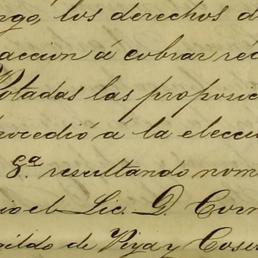 los derechos de
accion á cobrar
Votadas las proposic
rocedió á la elecci
8.ª resultando nom
Lic. D. Corn
gildo de Viya y Cose